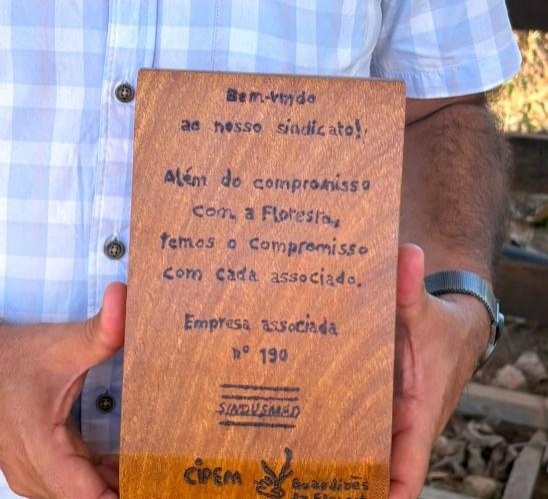 Bem-vindo
ao nosso sindicato!
Além do compromisso
com a Floresta,
temos o compromisso
com cada associado.
Empresa associada
nº 190
SINDUSMAD
CIPEM
Guardiões
da Floresta